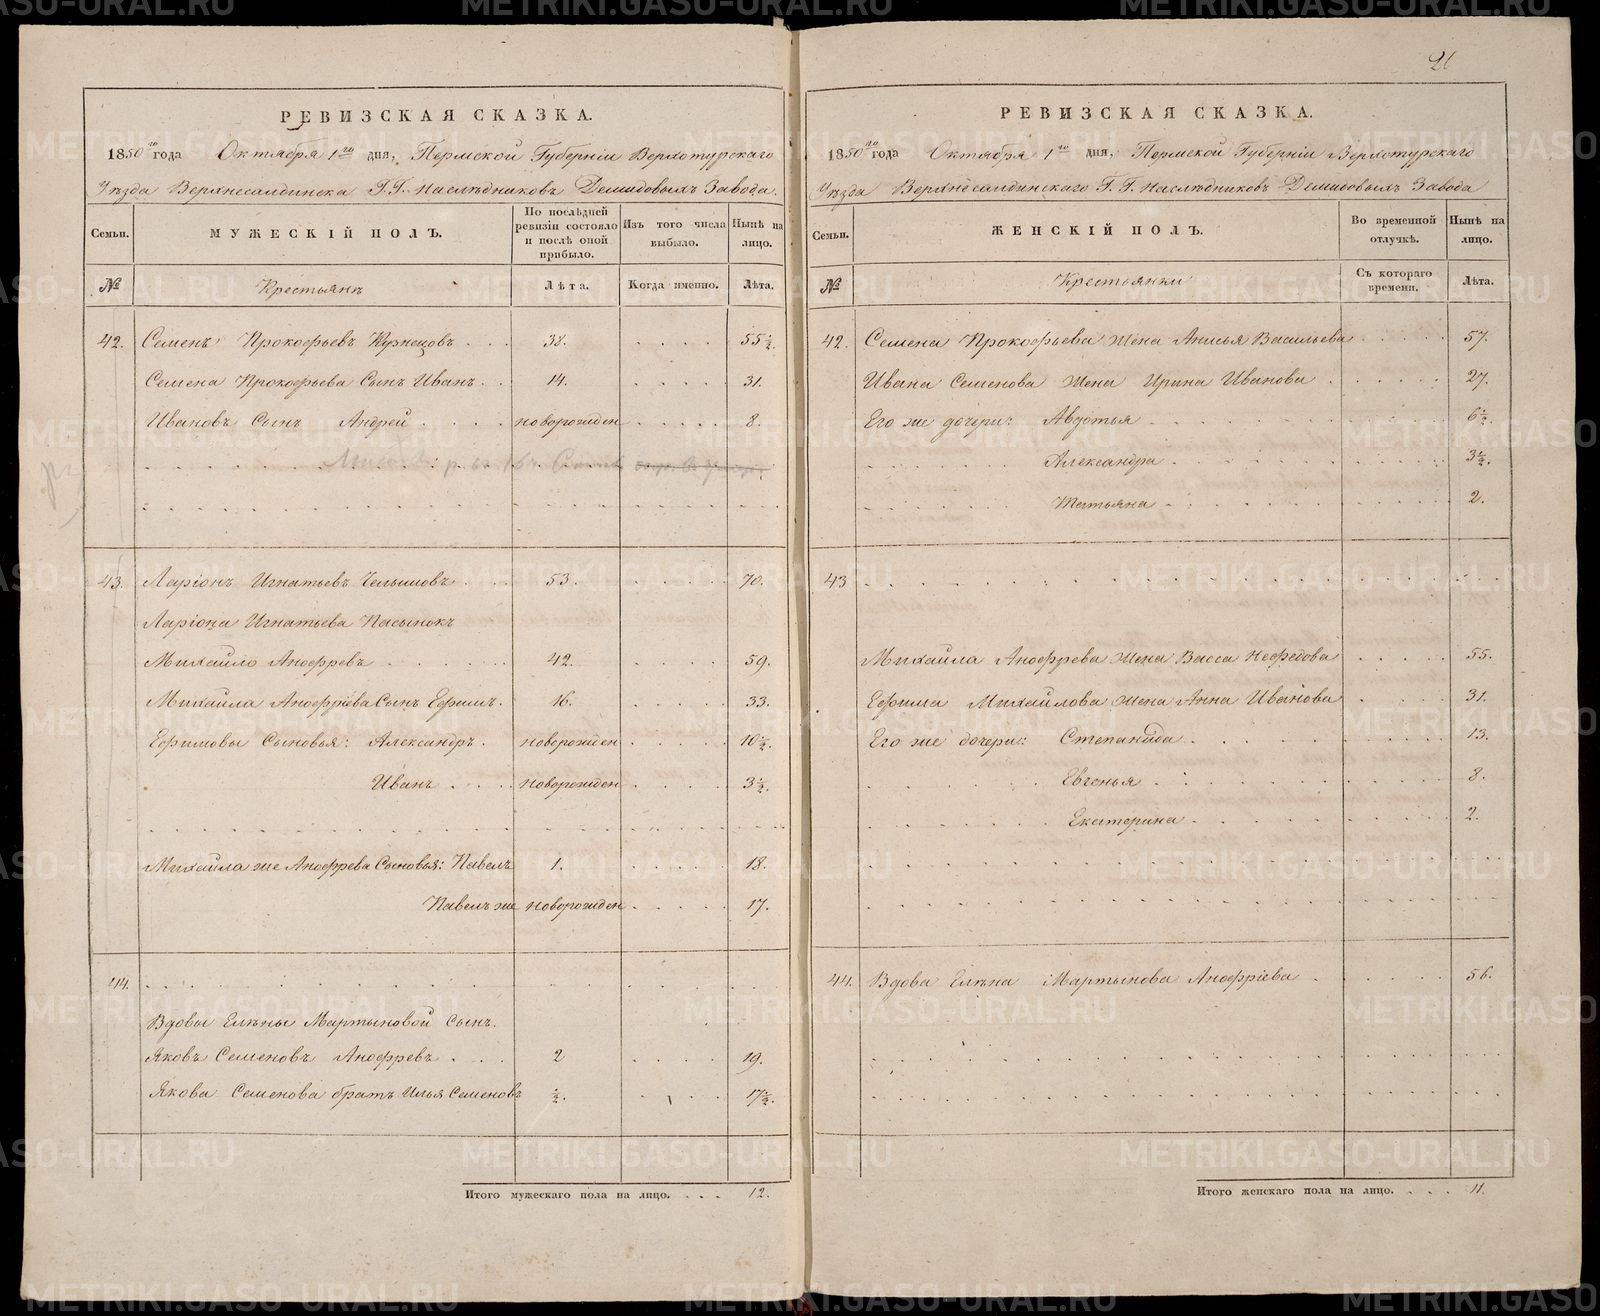 21
РЕВИЗСКАЯ СКАЗКА.
1850го года Октября 1го дня, Пермской Губерніи Верхотурскаго
Уѣзда Верхнесалдинска Г.Г. Наслѣдниковъ Демидовыхъ Завода.
Семьи. МУЖЕСКІЙ ПОЛЪ. По послѣдней ревизіи состояло и послѣ оной прибыло. Изъ того числа выбыло. Нынѣ на лицо.
№ Крестьянъ Лѣта. Когда именно. Лѣта.
42. Семенъ Прокофьевъ Кузнецовъ 38. 55½.
Семена Прокофьева Сынъ Иванъ 14. 31.
Ивановъ Сынъ Андрей новорожден 8.
43. Ларіонъ Игнатьевъ Челышовъ 53. 70.
Ларіона Игнатьева Пасынокъ
Михайло Анофревъ 42. 59.
Михайла Анофріева Сынъ Ефимъ. 16. 33.
Ефимовы Сыновья: Александръ. новорожден 10½.
Иванъ новорожден 3½.
Михайла же Анофрева Сыновья: Павелъ 1. 18.
Павелъ же новорожден 17.
44.
Вдовы Елѣны Мартыновой Сынъ.
Яковъ Семеновъ Анофревъ 2 19.
Якова Семенова братъ Илья Семеновъ ½. 17½.
Итого мужескаго пола на лицо. 12.
РЕВИЗСКАЯ СКАЗКА.
1850го года Октября 1го дня, Пермской Губерніи Верхотурскаго
Уѣзда Верхнесалдинскаго Г.Г. Наслѣдниковъ Демидовыхъ Завода
Семьи. ЖЕНСКІЙ ПОЛЪ. Во временной отлучкѣ. Нынѣ на лицо.
№ Крестьянки Съ котораго времени. Лѣта.
42. Семена Прокофьева жена Анисья Васильева 57.
Ивана Семенова жена Ирина Иванова 27.
Его же дочери: Авдотья 6½.
Александра 3½.
Татьяна 2.
43
Михайла Анофрева жена Васса Нефедова 55.
Ефима Михайлова жена Анна Иванова 31.
Его же дочери: Степанида 13.
Евгенья 8.
Екатерина 2.
44. Вдова Елѣна Мартынова Анофріева 56.
Итого женскаго пола на лицо. 11.
METRIKI.GASO-URAL.RU